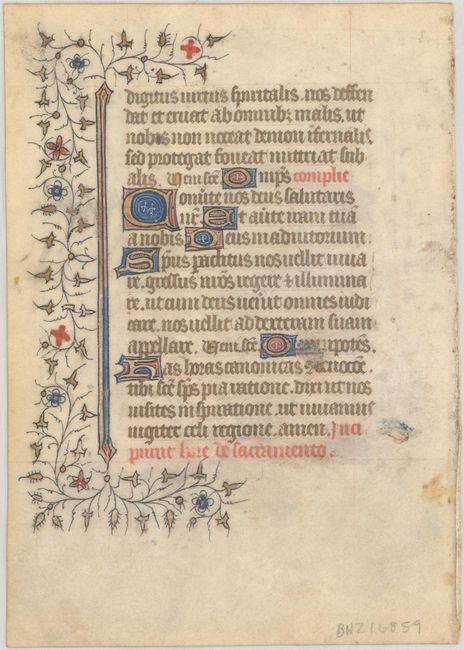 digitus virtus spiritalis. nos deffen
dat et eruat ab omnibꝫ malis. ut
nobis non noceat demon infernalis.
sed protegat foveat nutriat sub
alis. Veni scē Omps complie
Convte nos deus salutaris
nr̄. Et avte iram tuā
a nobis Deus in adiutorium.
Spūs paclitus nos vellit iuva
re. gressus nr̄os regere & illumina
re. ut cum deus ven̄it omnes iudi
care. nos vellit ad dexteram suam
appellare. Veni scē Omnipotēs.
Has horas canonicas
tibi scē sp̄s pia ratione. dixi ut nos
visites inspiratione. ut vivamus
iugiter celi regione. amen. Inci
piunt hore de sacramento.
BHZ16859